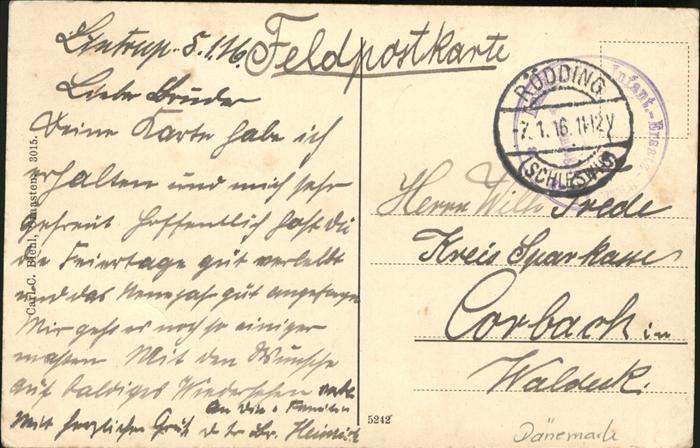 Lintrup. 5.1.16.
Feldpostkarte
Lieber Bruder
Deine Karte habe ich
erhalten und mich sehr
gefreut hoffentlich hast du
die Feiertage gut verlebt
und das Neuejahr gut angefangen
Mir geht es noch so einiger
maßen Mit den Wunsche
auf baldiges Wiedersehen
an die Familie
Mit herzlichen Gruß d Br. Heinrich
Carl C. Biehl, 3015.
RÖDDING
-7.1.16.11-12V
(SCHLESWIG)
Infant.-Ersatz-
Herrn Willi Trede
Kreis Sparkasse
Corbach in
Waldeck.
5242
Dänemark